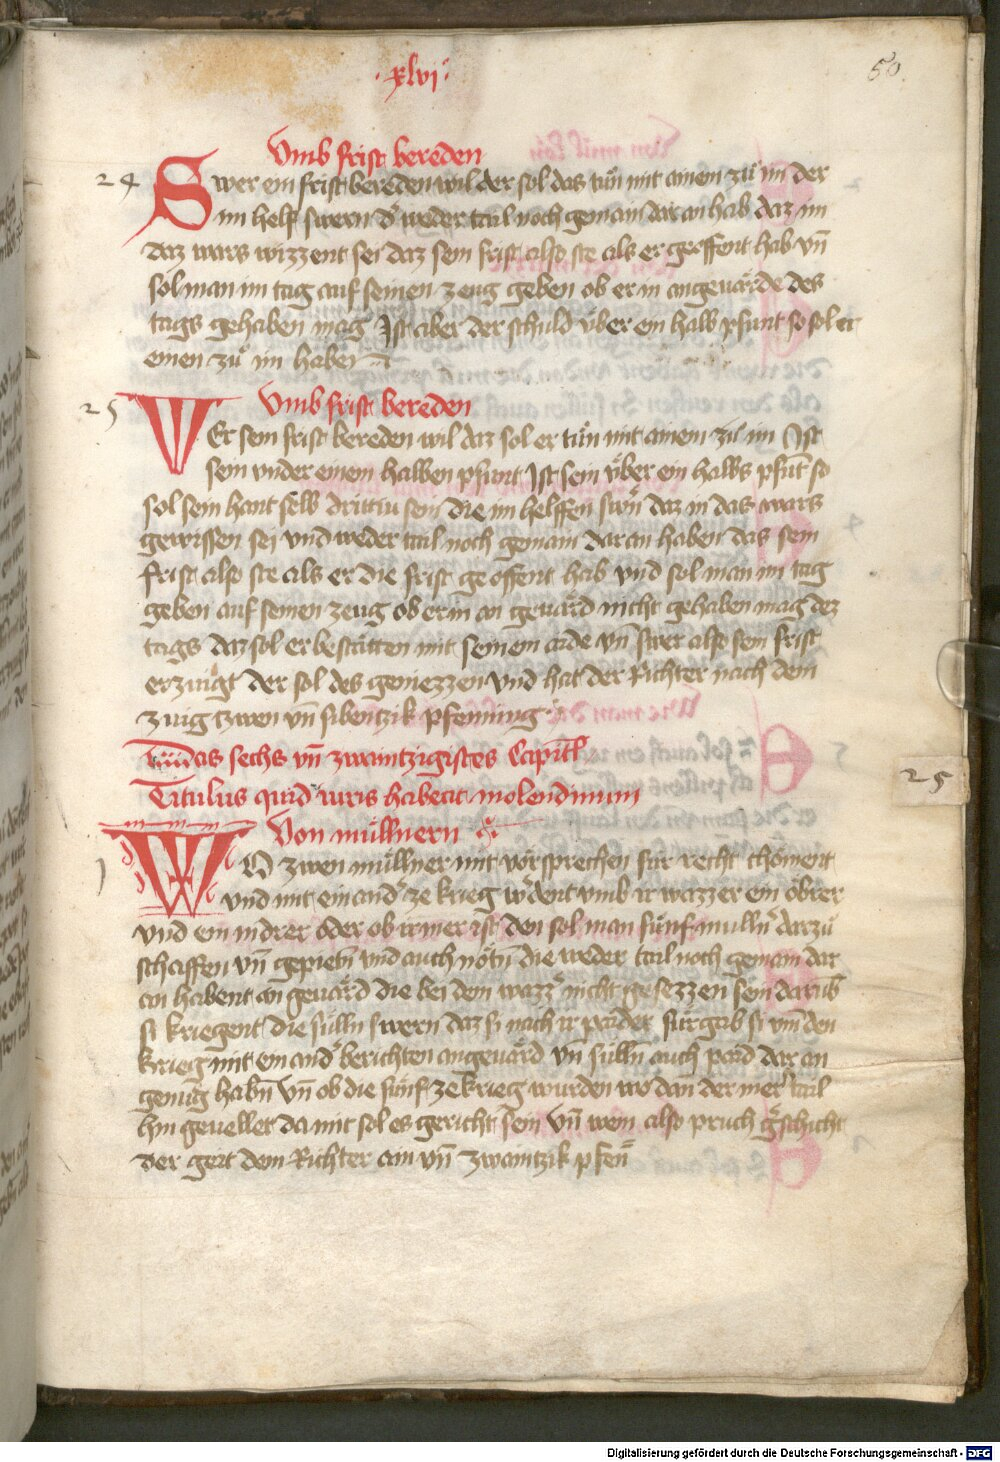 ·xlvi·
50.
Vmb frist bereden
24 Swer ein frist bereden wil der sol das tuͦn mit ainem zuͦ im der
im helf swern d' weder tail noch gemain dar an hab daz im
daz wars wizzent sei daz sein frist also ste als er geoffent hab vn̄
sol man im tag auf seinen zeug geben ob er in angeuärde des
tags gehaben mag Ist aber der schuld über ein halb pfunt so sol er
einen zuͦ im haben
Vmb frist bereden
25 WEr sein frist bereden wil daz sol er tuͦn mit ainem zu im Ist
sein vnder einem halben pfunt Ist sein über ein halbs pfūt so
sol sein hant selb drittiu sein die im helffen sw'n daz in das wars
gewissen sei vnd weder tail noch gemain dar an haben das sein
frist also ste als er die frist geoffent hab vnd sol man im tag
geben auf seinen zeug ob er in an geuärd nicht gehaben mag dez
tags daz sol er bestätten mit seinem aide vn̄ swer also sein frist
erzuigt der sol des geniezzen vnd hat der Richter nach dem
zuig tzwen vn̄ sibentzik pfenning
Das sechs vn̄ zwaintzigistes Capitl
25
Titulus quid iuris habeat molendinum
Von müllnern
1 WO zwen müllner mit vorsprechen für recht choment
vnd mit einand' ze krieg w'dent vmb ir wazzer ein obrer
vnd ein indrer oder ob ir mer ist den sol man fünf mulln' darzuͦ
schaffen vn̄ gepietn̄ vnd auch nötn̄ die weder tail noch gemain dar
an habent an geuärd die bei dem wazz' nicht gesezzen sein darūb
si kriegent die sülln swern daz si nach ir paider fürgab si vm̄ den
krieg mit einand' berichten angeuärd vn̄ sülln auch paid dar an
genuͦg habn̄ vn̄ ob die fünf ze krieg wurden wo dan der mer' tail
hin geuellet da mit sol es gericht sein vn̄ wem also pruch g'schicht
der geit dem Richter ain vn̄ zwaintzik pfen̄
Digitalisierung gefördert durch die Deutsche Forschungsgemeinschaft - DFG